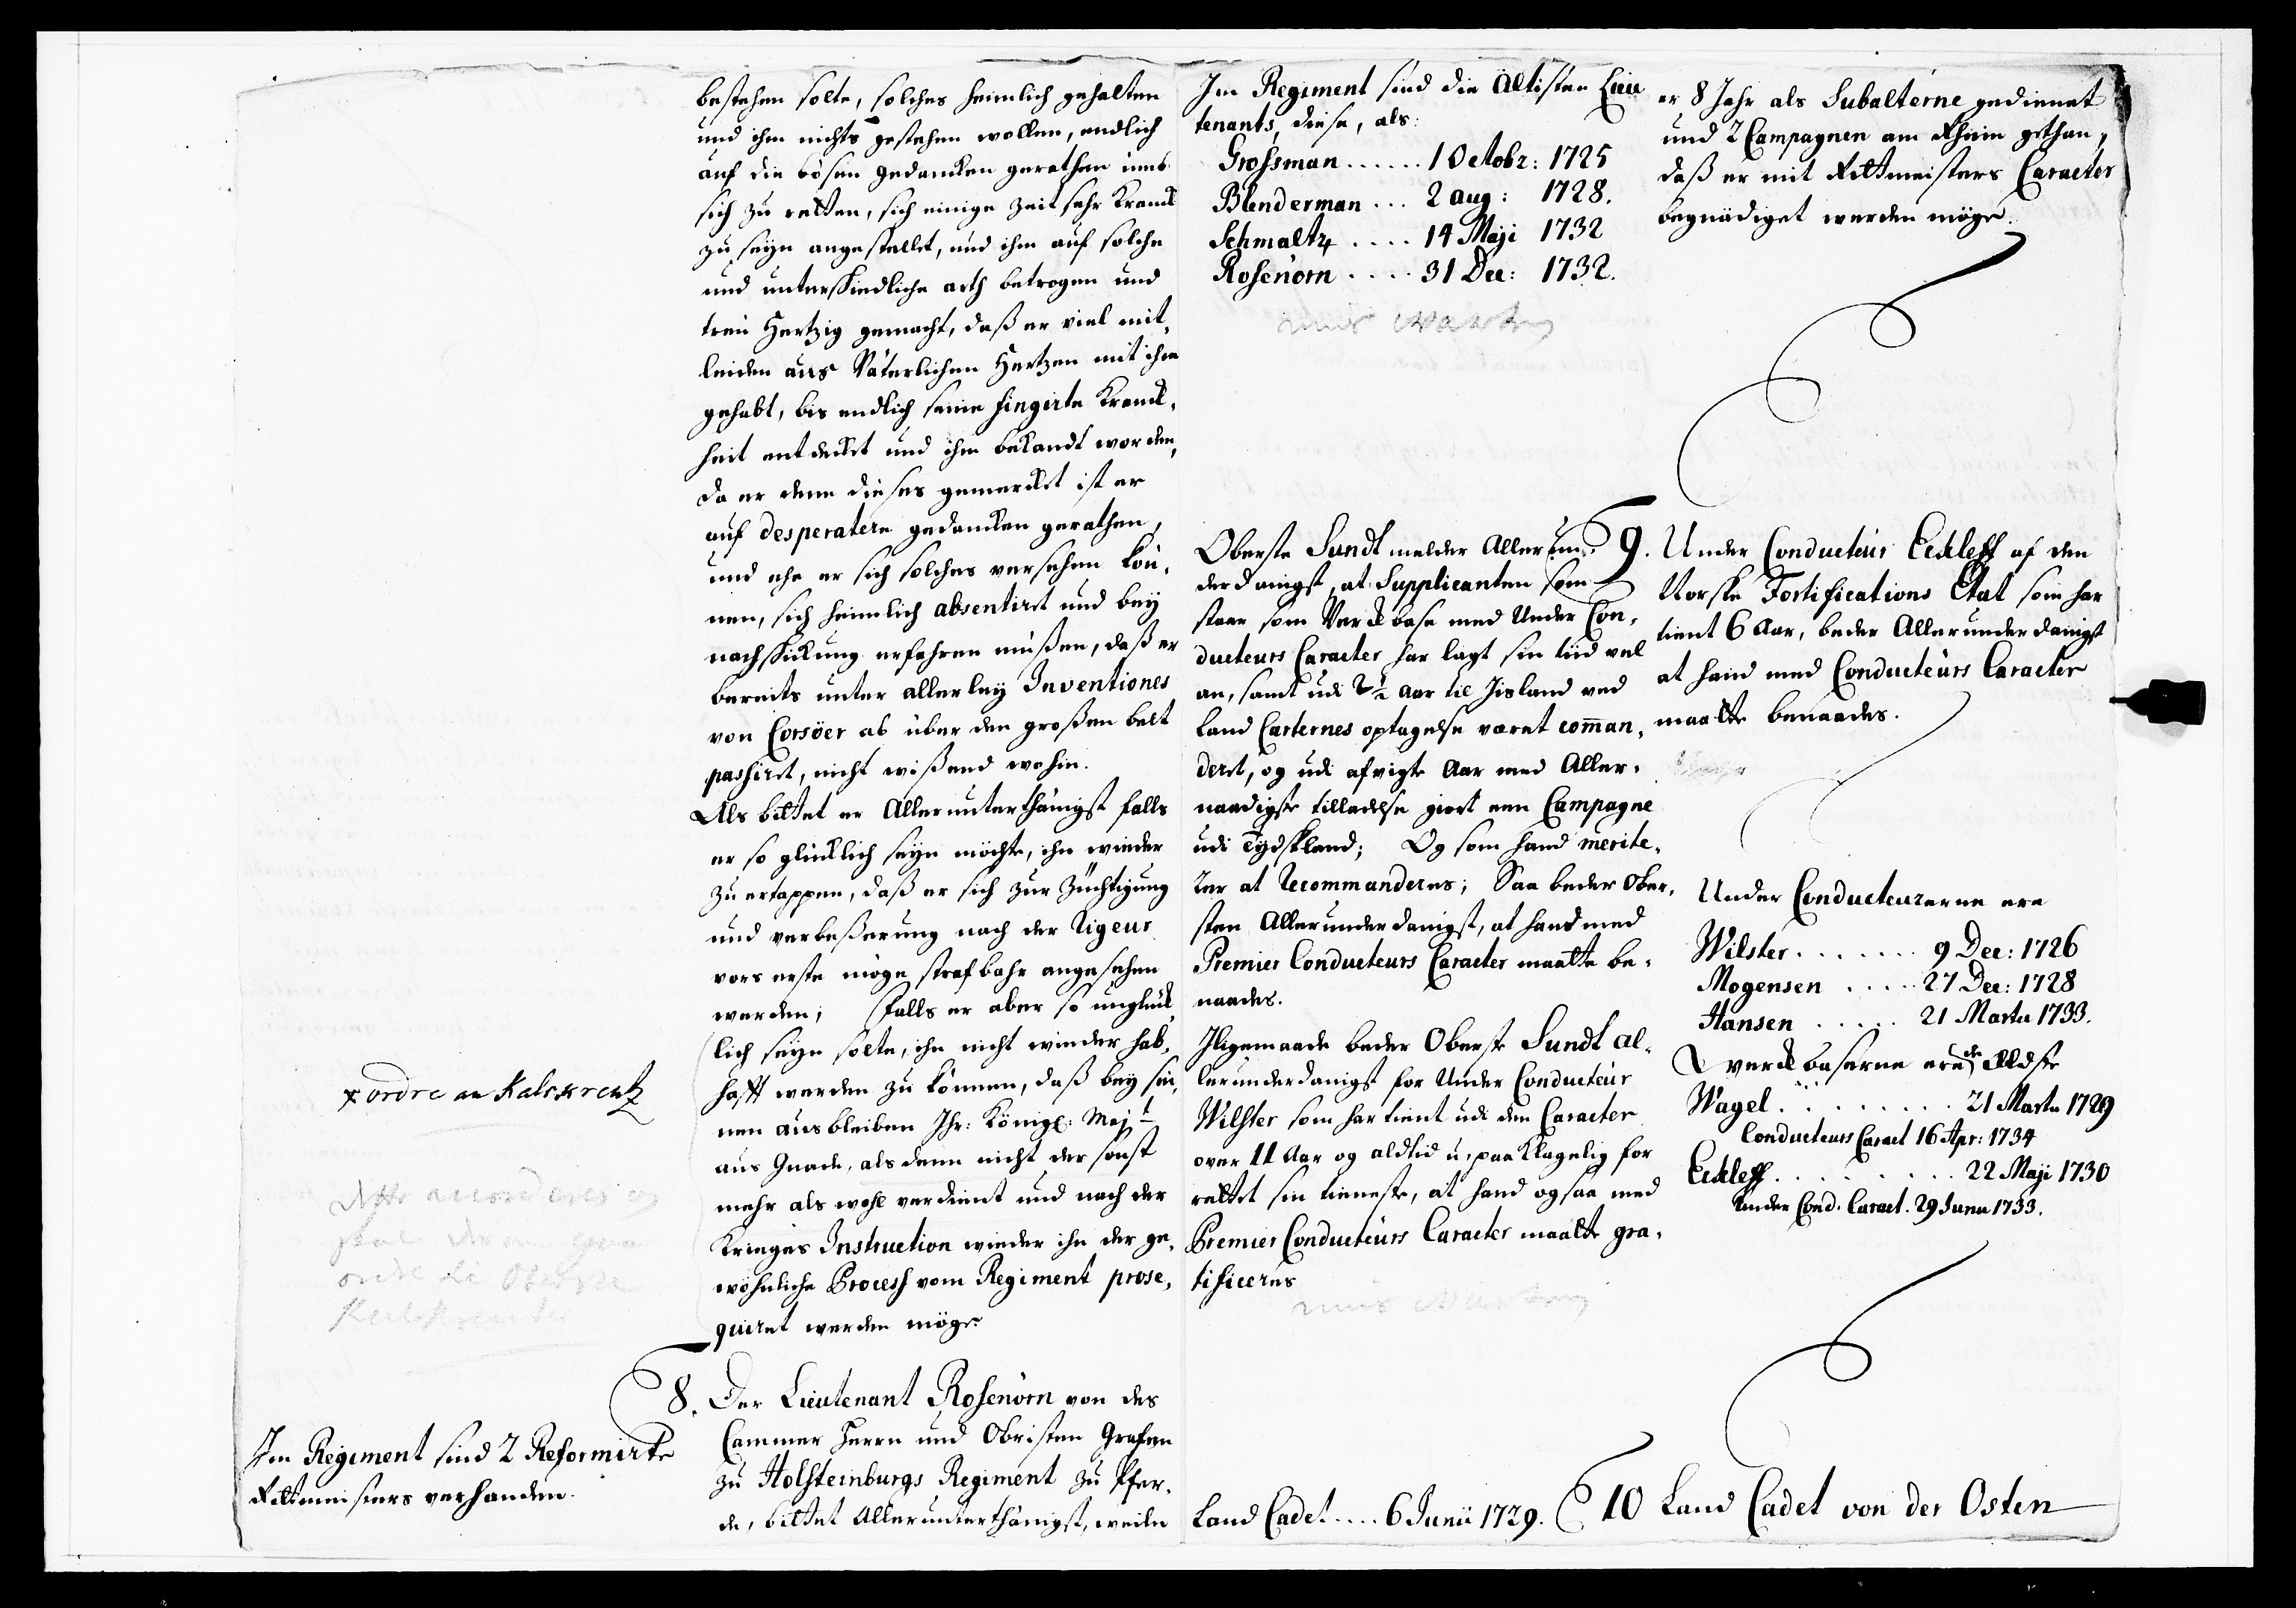 bestehen solte, solches heimlich gehalten
und ihm nichts gestehen wollen, endlich
auf die bösen gedancken gerathen umb
sich zu retten, sich einige Zeit sehr Kranck
zu seyn angestellet, und ihm auf solche
und unterschiedliche arth betrogen und
treu Hertzig gemacht, daß er viel mit,
leiden aus Väterlichen Hertzen mit ihm
gehabt, bis endlich seine fingirte Kranck,
heit entdecket und ihm bekandt worden,
da er denn dieses gemercket ist er
auf desperatere gedancken gerathen,
und ehe er sich solches versehen kön,
nen, sich heimlich absentiret und bey
nachschickung erfahren müßen, daß er
bereits unter allerley Inventiones
von Corsöer ab über den großen belt
passiret, nicht wißend wohin.
Als bittet er Allerunterthänigst falls
er so glücklich seyn möchte, ihn wieder
zu ertappen, daß er sich zur Züchtigung
und verbeßerung nach der Rigeur
vors erste möge strafbahr angesehen
werden; falls er aber so unglück,
lich seyn solte, ihn nicht wieder hab,
hafft werden zu können, daß bey sei,
nen ausbleiben Ihr: Königl: Majt
aus Gnade, als denn nicht der sonst
mehr als wohl verdient und nach der
Krieges Instruction wieder ihn der ge,
wöhnliche Process vom Regiment prose,
quiret werden möge.
x ordre an Kalckreutz
Dette accorderes og
skal
ordre til Oberste
Kalckreuter
8. Der Lieutenant Rosenörn von des
Cammer Herrn und Obristen Grafen
zu Holsteinburgs Regiment zu Pfer,
de, bittet Allerunterthänigst, weiln
Im Regiment sind 2 Reformirte
Rittmeisters verhanden.
Im Regiment sind die Ältisten Lieu
tenants, diese, als:
Grossman ...... 1 Octobr: 1725
Blenderman ... 2 aug: 1728.
Schmaltz .... 14 Maji 1732
Rosenörn .... 31 Dec: 1732.
er 8 Jahr als Subalterne gedienet
und 2 Campagnen am Rhein gethan,
daß er mit Rittmeisters Caracter
begnädiget werden möge.
Oberste Sundt melder Allerun,
derdanigst, at Supplicanten som
staar som Verckbase med Under Con,
ducteurs Caracter har lagt sin tiid vel
an, samt udi 2 1/2 Aar til Jisland ved
Land Carternes optagelse været comman,
deret, og udi afvigte Aar med Aller,
naadigste tilladelse giort een Campagne
udi Tydskland; Og som hand merite,
rer at Recommanderes; Saa beder Ober,
sten Allerunderdanigst, at hand med
Premier Conducteurs Caracter maatte be,
naades.
Iligemaade beder Oberste Sundt al,
lerunderdanigst for Under Conducteur
Wilster som har tient udi den Caracter
over 11 Aar og aldtid u,paaklagelig for
rettet sin tieneste, at hand ogsaa med
Premier Conducteurs Caracter maatte gra,
tificeres
9. Under Conducteur Eckleff af den
Norske Fortifications Etat som har
tient 6 Aar, beder Allerunderdanigst
at hand med Conducteurs Caracter
maatte benaades.
Under Conducteurerne ere
Wilster ....... 9 Dec: 1726
Mogensen ..... 27 Dec: 1728
Hansen ..... 21 Martii 1733.
Verckbaserne ere de Ældste
Wagel ........ 21 Martii 1729
Conducteurs Caract 16 Apr: 1734
Eckleff ......... 22 Maji 1730
Under Cond. Caract. 29 Junii 1733.
Land Cadet .... 6 Junii 1729.
10 Land Cadet von der Osten